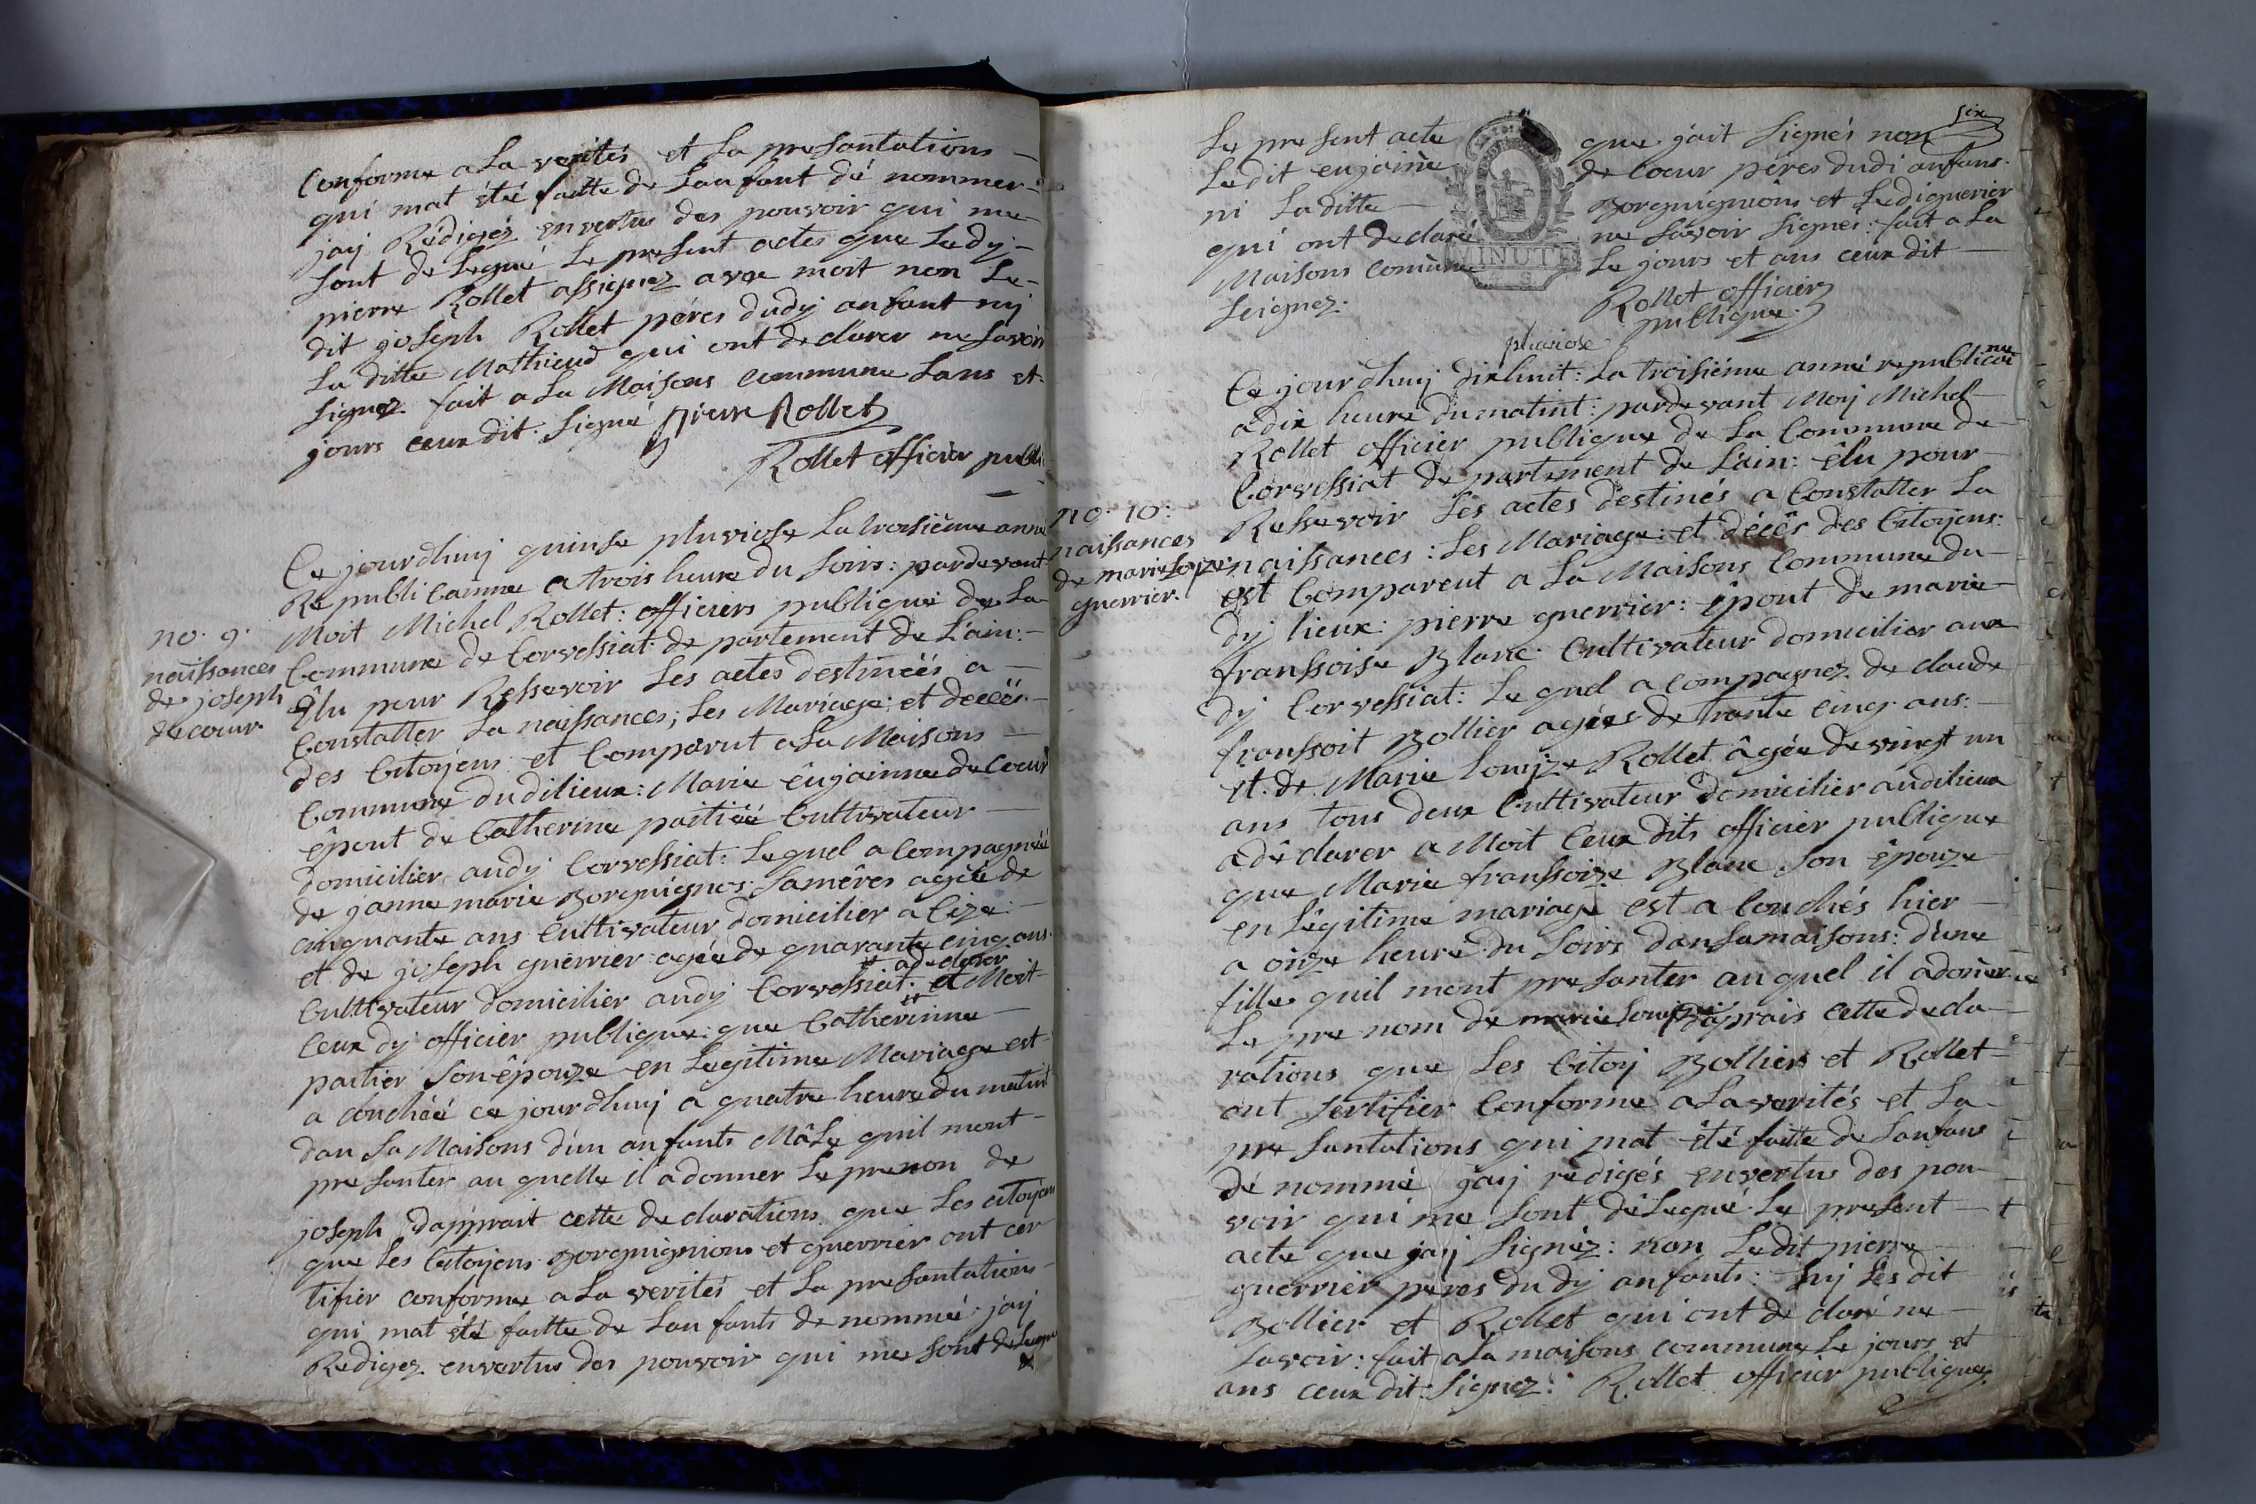 Conforme a La verités et La presantations
qui mat été faitte de Lanfant dé nommer
jaij Rédigéz envertus des pouvoir qui me
sont de Legué Le present actes que Ledij
pierre Rollet assignez avec moit non Le
dit joseph Rollet péres dudij anfant nij
La ditte Mathieud qui ont de clarer ne Savoir
Signez. fait a La Maisons commune Lans et
jours ceux dit. Signé pierre Rollet
Rollet officier publi
no. 9.
naissances
de joseph
de coeur
Ce jourdhuij quinse pluviose La troisiéme anné
Republicanne a trois heure du Soirs: pardevant
Moit Michel Rollet: officiers publique de La
Commune de Corvessiat de partement de L'ain:
Êlu pour Ressevoir Les actes destinéés a
Constatter La naissances; Les Mariage; et décés.
des Citoijens et Comparut a La Maisons
Commune dudilieux: Marie êujainne de Coeur
êpout de Catherine paitiéé Cultivateur
domicilier audij Corvessiat: Lequel a compagnéé
de janne marie Borguignos Samêres agéé de
cinquante ans cultivateur domicilier a Cize:
et de joseph guerrier agéé de quarante cinq ans.
a declarer
Cultivateur domicilier audij Corvessiat. a Moit
Ceux dij officier publique: que Catherinne
paitier Son êpouze en Legitime Mariage est
a couchéé ce jourdhuij a quatre heure du matint
dan La Maisons d'un anfants Mâle quil mont
presanter au quelle il a donner Le prenon de
joseph dapprait cette de clarations que Les citoijens
que Les Citoijens Borguignions et guerrier ont cer
tifier conforme a La verités et La presantations
qui mat été faitte de Lanfants de nommé jaij
Redigez envertus des pouvoir qui me sont delegué
six
Le present acte que j'ait Signéi non
Ledit eujainne de Coeur péres dudi anfans.
ni La ditte Borguignions et Lediguerier
qui ont declaré ne Savoir Signéi: fait a La
Maisons Comúne Le jours et ans ceux dit
Seignez.
MINUTE
Rollet officier
publique.
no. 10:
naissances
de marie Louize
guerrier.
pluviose
Ce jourdhuij dixhuit: La troisiéme anné republicainne
a dix heure du matint: pardevant Moij Michel
Rollet officier publique de La Commune de
Corvessiat de partement de L'ain: êlu pour
Ressevoir Les actes destinés a Constatter La
naissances: Les Mariage: et décês des Citoijens:
est Comparent a La Maisons Commune du
dij lieux: pierre guerrier: êpout de marie
franssoise Blanc. Cultivateur domicilier aux
dij Corvessiat: Lequel a compagnez de claude
franssoit Bollier agées de trante cinq ans:
et. de Marie Louijze Rollet âgée de vingt un
ans tous deux Cultivateur domicilier audilieux
a dé clarer a Moit Ceux dits officier publique
que Marie franssoize Blanc Son êpouze
en Légitime mariage est a Couchés hier
a onze heure du Soirs dan Samaisons: dune
fille quil mont presanter auquel il a donner
Le pre nom de marie Louize Dáprais cette decla
rations que Les Citoij Bollier et Rollet
ont sertifier Conforme a La verités et La
presantations qui mat été faitte de Lanfans
dé nommé jaij redigés envertus des pou
voir qui me Sont délegué Le present
acte que jaij Signéz: non Ledit pierre
guerrier peres du dij anfants: nij Les dit
Bollier et Rollet qui ont de claré ne
Savoir: fait a La maisons commune Le jours et
ans ceux dit Signez: Rollet officier publique